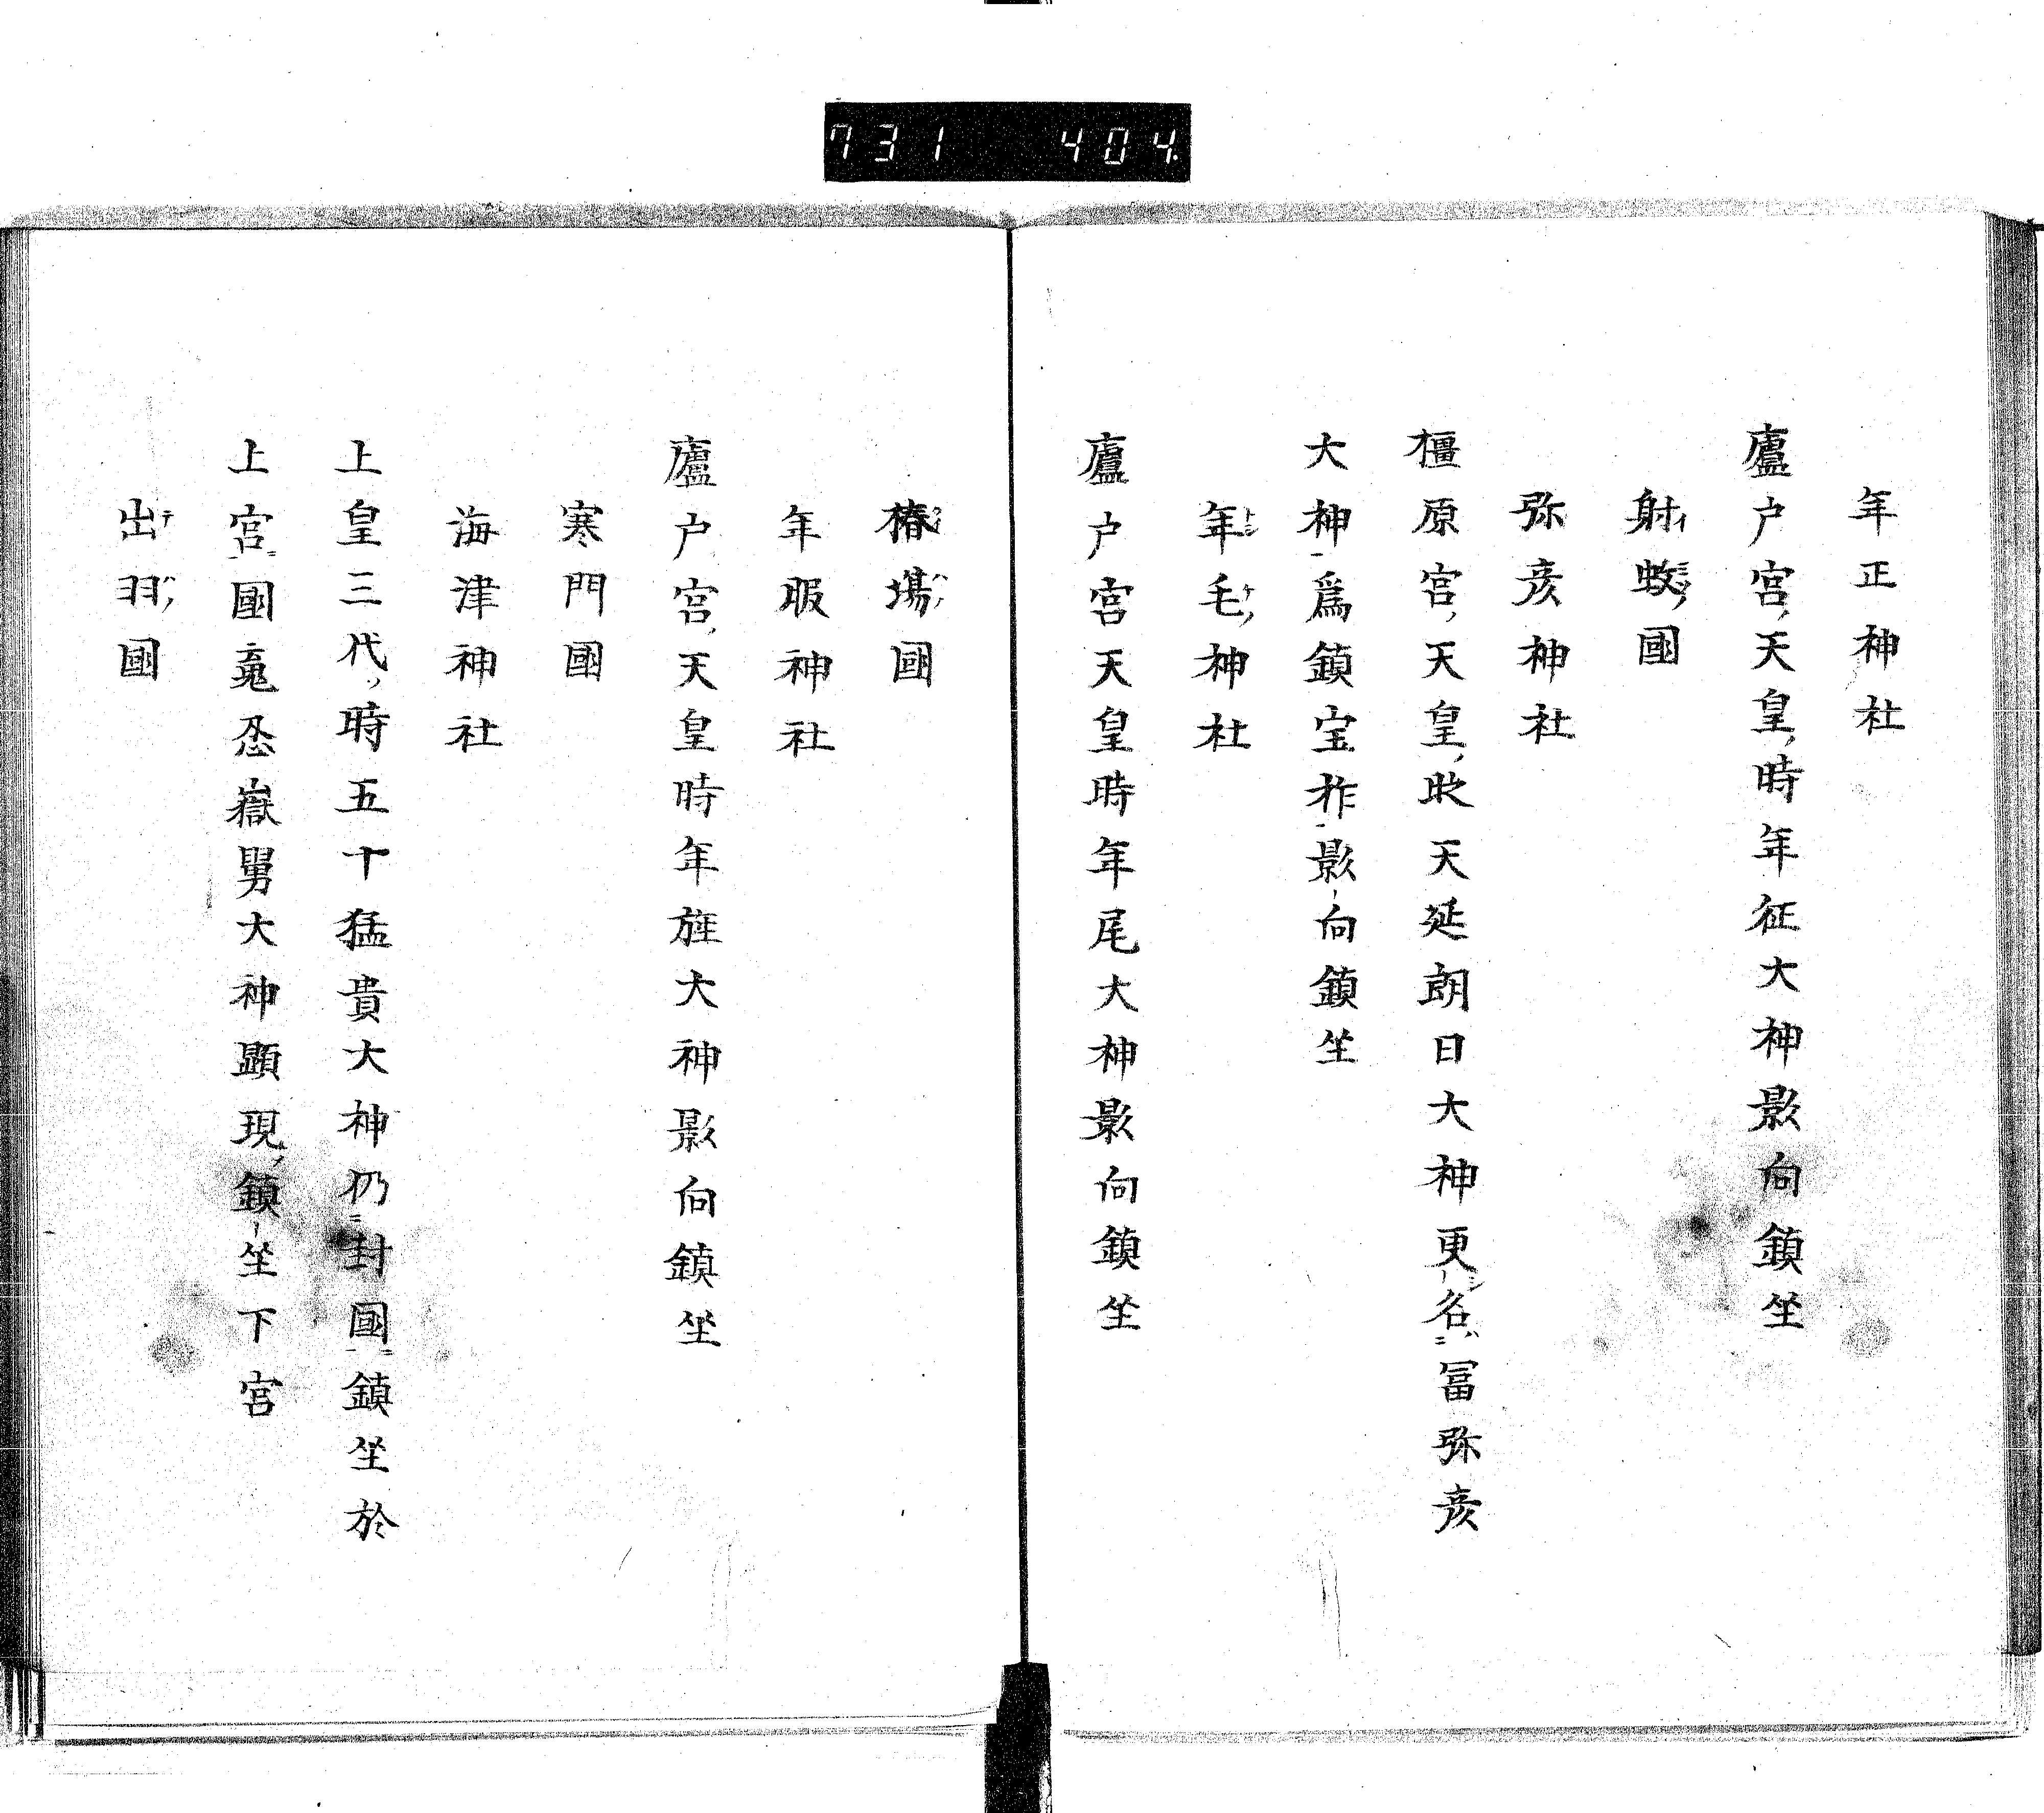 731 404
年正神社
廬戸宮天皇時年征大神影向鎮坐
射蛟國
弥彦神社
橿原宮天皇時天延朗日大神更名冨弥彦
大神爲鎮宝祚影向鎮坐
年毛神社
廬戸宮天皇時年尾大神影向鎮坐
椿場國
年服神社
廬戸宮天皇時年旌大神影向鎮坐
寒門國
海津神社
上皇三代時五十猛貴大神仍封國鎮坐於
上宮國竟忍嶽男大神顕現鎮坐下宮
出羽國